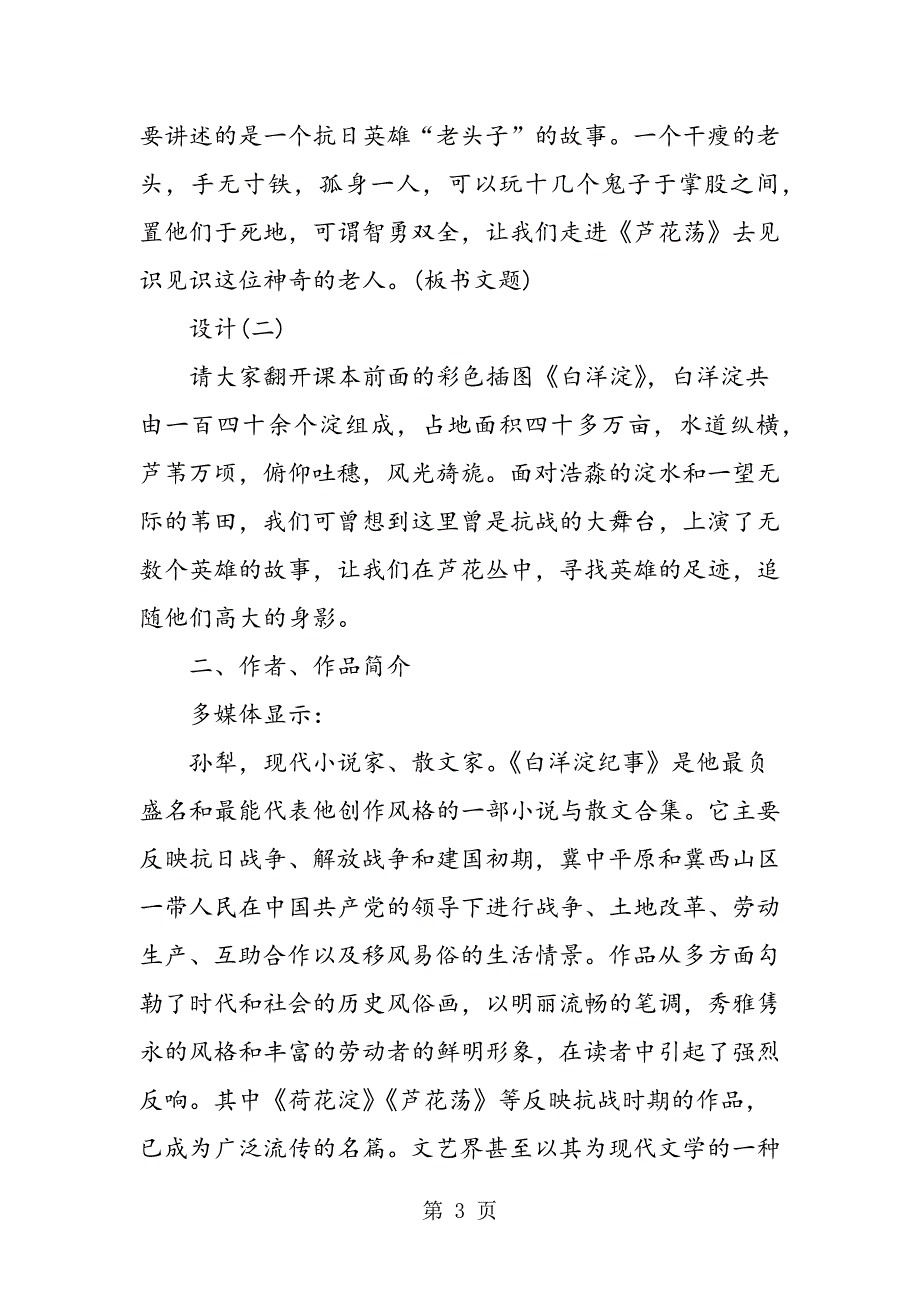 要讲述的是一个抗日英雄“老头子”的故事。一个干瘦的老
头，手无寸铁，孤身一人，可以玩十几个鬼子于掌股之间，
置他们于死地，可谓智勇双全，让我们走进《芦花荡》去见
识见识这位神奇的老人。(板书文题)
设计(二)
请大家翻开课本前面的彩色插图《白洋淀》，白洋淀共
由一百四十余个淀组成，占地面积四十多万亩，水道纵横，
芦苇万顷，俯仰吐穗，风光旖旎。面对浩淼的淀水和一望无
际的苇田，我们可曾想到这里曾是抗战的大舞台，上演了无
数个英雄的故事，让我们在芦花丛中，寻找英雄的足迹，追
随他们高大的身影。
二、作者、作品简介
多媒体显示：
孙犁，现代小说家、散文家。《白洋淀纪事》是他最负
盛名和最能代表他创作风格的一部小说与散文合集。它主要
反映抗日战争、解放战争和建国初期，冀中平原和冀西山区
一带人民在中国共产党的领导下进行战争、土地改革、劳动
生产、互助合作以及移风易俗的生活情景。作品从多方面勾
勒了时代和社会的历史风俗画，以明丽流畅的笔调，秀雅隽
永的风格和丰富的劳动者的鲜明形象，在读者中引起了强烈
反响。其中《荷花淀》《芦花荡》等反映抗战时期的作品，
已成为广泛流传的名篇。文艺界甚至以其为现代文学的一种
第 3 页